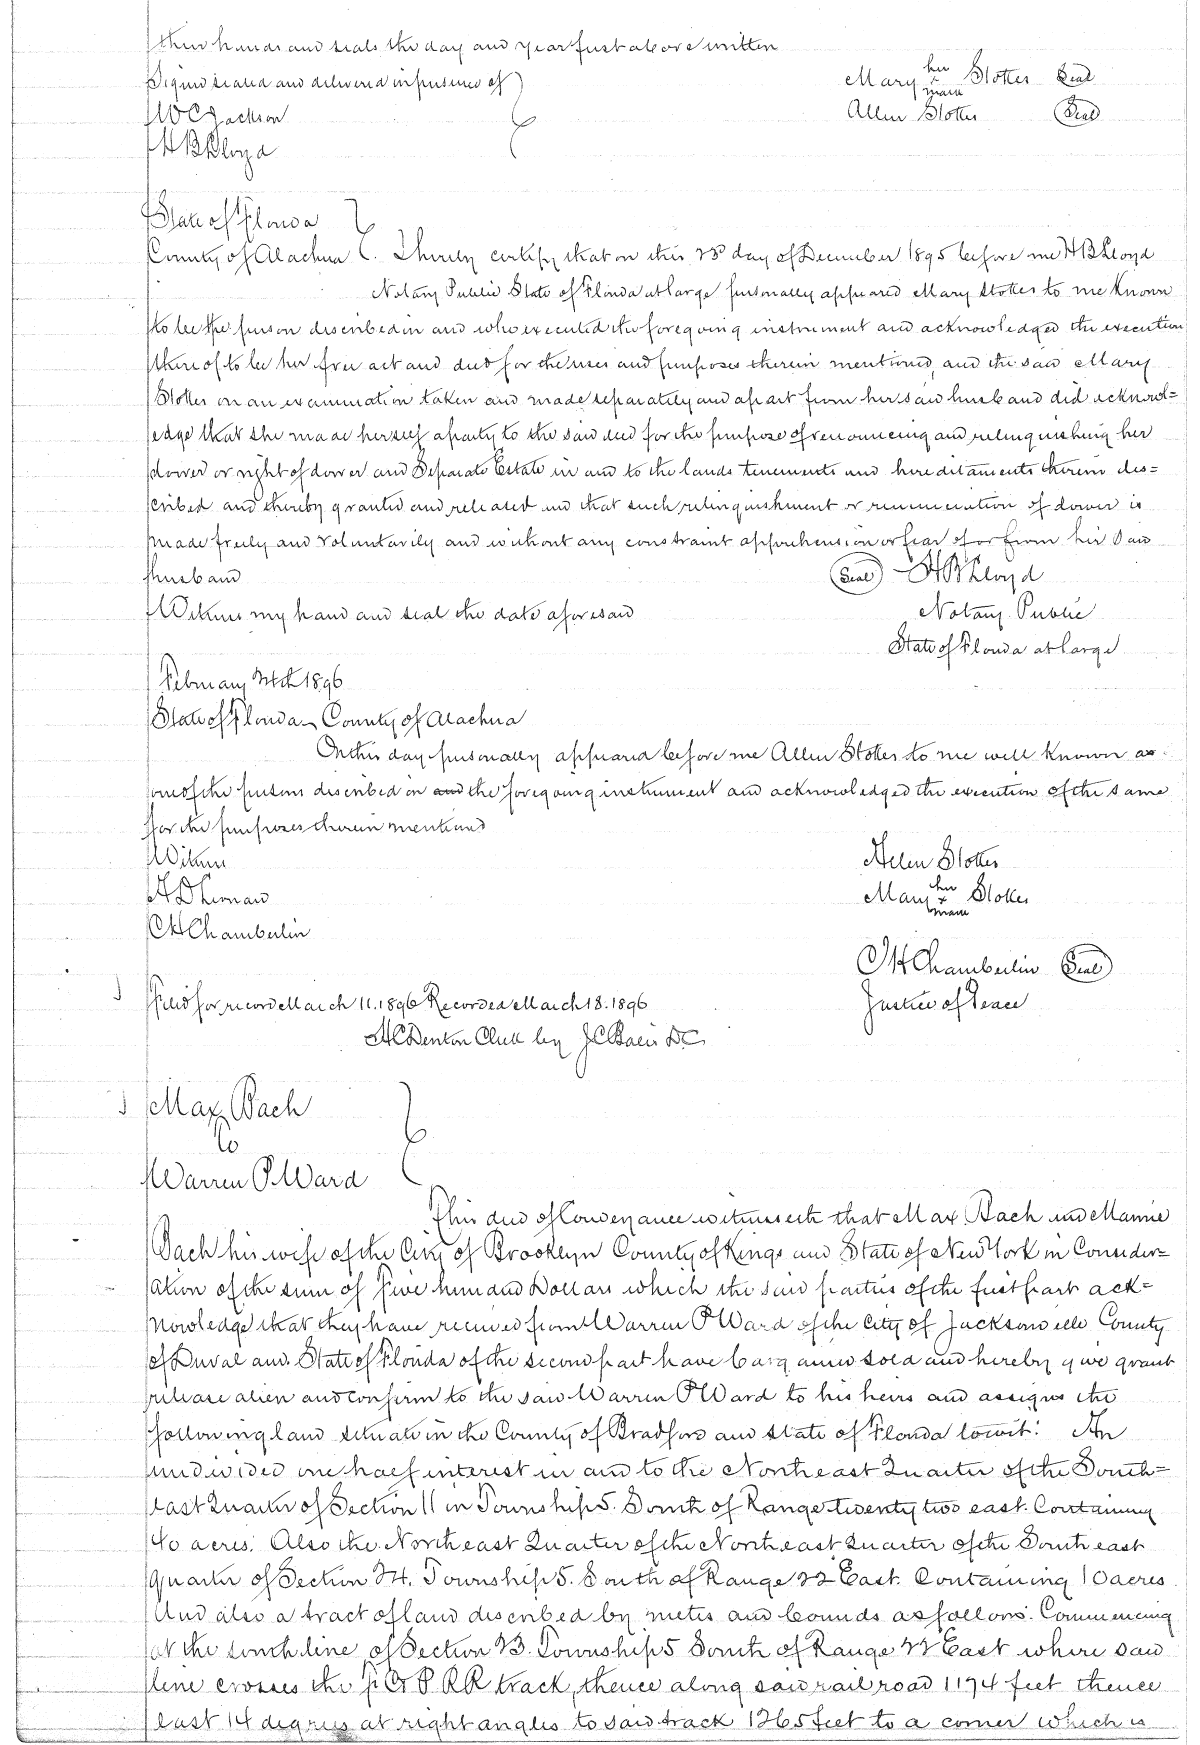 their hands and seals the day and year first above written
Signed sealed and delivered in presence of
Mary her x mark Stokes Seal
W C Jackson
Allen Stokes Seal
H B Lloyd
State of Florida
County of Alachua I hereby certify that on this 23d day of December 1895 before me H B Lloyd
Notary Public State of Florida at large personally appeared Mary Stokes to me known
to be the person described in and who executed the foregoing instrument and acknowledged the execution
thereof to be her free act and deed for the uses and purposes therein mentioned, and the said Mary
Stokes on an examination taken and made separately and apart from her said husband did acknowl=
edge that she made herself a party to the said deed for the purpose of renouncing and relinquishing her
dower or right of dower and Separate Estate in and to the lands tenements and hereditaments therein des=
cribed and thereby granted and released and that such relinquishment or renunciation of dower is
made freely and voluntarily and without any constraint apprehension or fear of or from her said
husband
Seal H B Lloyd
Witness my hand and seal the date aforesaid
Notary Public
State of Florida at large
February 24th 1896
State of Florida County of Alachua
On this day personally appeared before me Allen Stokes to me well known as
one of the persons described in and the foregoing instrument and acknowledged the execution of the same
for the purposes therein mentioned
Witness
Allen Stokes
Mary her x mark Stokes
C H Chamberlin
C H Chamberlin Seal
Filed for record March 11. 1896 Recorded March 18. 1896
Justice of Peace
H C Denton Clerk by J C D.C.
Max Bach
to
Warren P. Ward
This deed of Conveyance witnesseth that Max Bach and Mamie
Bach his wife of the City of Brooklyn County of Kings and State of New York in Consider=
ation of the sum of Five hundred Dollars which the said parties of the first part ack=
nowledge that they have received from Warren P Ward of the City of Jacksonville County
of Duval and State of Florida of the second part have bargained sold and hereby give grant
release alien and confirm to the said Warren P Ward to his heirs and assigns the
following land situate in the County of Bradford and State of Florida towit: An
undivided one half interest in and to the Northeast Quarter of the South=
east Quarter of Section 11 in Township 5. South of Range twenty two east. Containing
40 acres. Also the Northeast Quarter of the Northeast Quarter of the Southeast
quarter of Section 24. Township 5. South of Range 22 East. Containing 10 acres
And also a tract of land described by metes and bounds as follows. Commencing
at the south line of Section 23. Township 5 South of Range 22 East where said
line crosses the F C & P RR track, thence along said railroad 1174 feet thence
east 14 degrees at right angles to said track 1265 feet to a corner which is